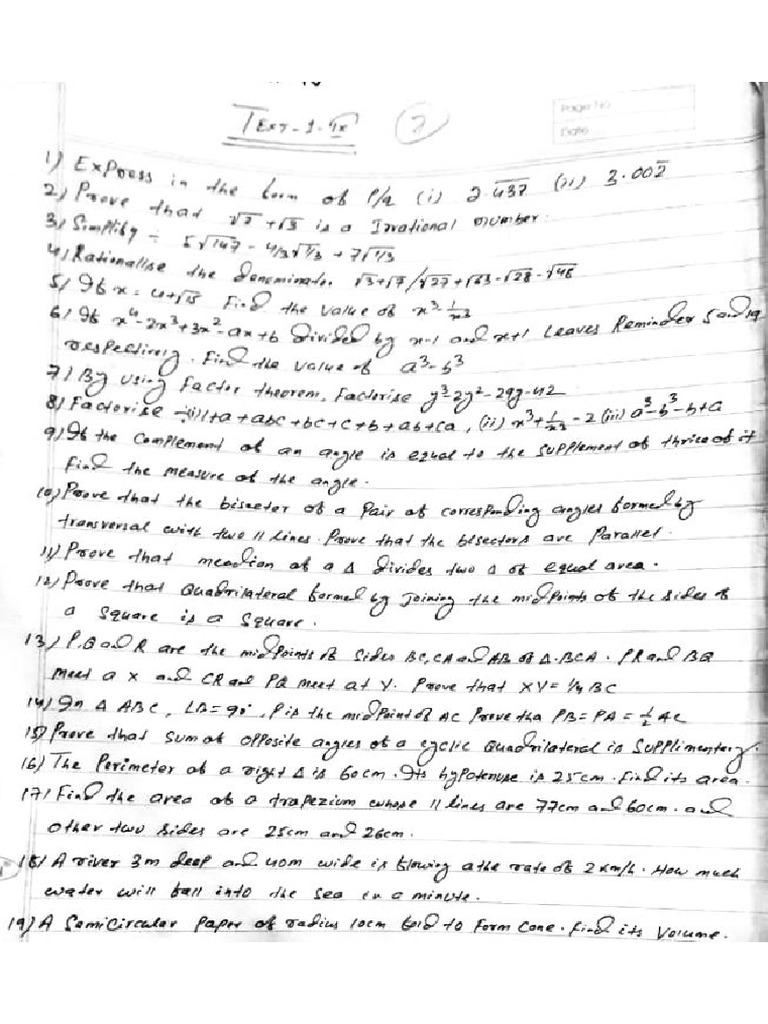 TEXT-1-IX (2)
Page No
Date
1) Express in the form of P/q (i) 2.4̅3̅7̅ (ii) 3.002̅
2) Prove that √2+√3 is a Irrational number.
3) Simplify ÷ 5√147 - 4/3√1/3 + 7√1/3
4) Rationallise the denominato. √3+√7/√27+√63-√28-√48
5) If x = 4+√15 Find the value of x³ 1/x³
6) If x⁴-2x³+3x²-ax+b divided by x-1 and x+1 Leaves Reminder 5 and 19
respectively. Find the value of a³-b³
7) By using Factor theorem, Factorise y³-2y²-29y-42
8) Factorise ÷(i) 1+a+abc+bc+c+b+ab+ca, (ii) x³+1/x³-2 (iii) a³-b³-b+a
9) If the complement of an angle is equal to the supplement of thrice of it
Find the measure of the angle.
10) Prove that the bisector of a Pair of corresponding angles formed by
transversal with two 11 Lines. Prove that the bisectors are Parallel.
11) Prove that meadion of a Δ divides two Δ of equal area.
12) Prove that Quadrilateral formed by Joining the midpoints of the sides of
a square is a square.
13) P,Q and R are the midpoints of Sides BC, CA and AB of Δ.BCA. PR and BQ
meet a X and CR and PQ meet at Y. Prove that XY=1/4 BC
14) In Δ ABC, LB=90°, P is the midpoint of AC Prove tha PB=PA=½ AC
15) Prove that sum of opposite angles of a cyclic Quadrilateral is supplimentery.
16) The Perimeter of a right Δ is 60cm. Its hypotenuse is 25cm. Find its area.
17) Find the area of a trapezium whose 11 lines are 77cm and 60cm. and
other two sides are 25cm and 26cm.
18) A river 3m deep and 40m wide is flowing a the rate of 2 km/h. How much
water will fall into the sea in a minute.
19) A Samicircular Paper of radius 10cm fold to Form Cone. Find its Volume.